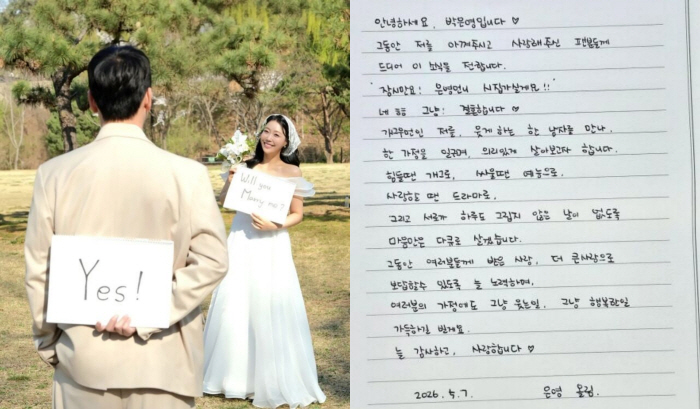 Yes!
Will you
Marry me?
안녕하세요, 박은영입니다♡
그동안 저를 아껴주시고 사랑해주신 팬분들께
드디어 이 소식을 전합니다.
"잠시만요! 은영언니 시집가실게요!!"
네 그냥! 결혼합니다♡
개그우먼인 저를, 웃게 하는 한 남자를 만나,
한 가정을 일구며, 의리있게 살아보고자 합니다.
힘들땐 개그로, 싸울땐 예능으로,
사랑할 땐 드라마로,
그리고 서로가 하루도 그립지 않은 날이 없도록
마음만은 다큐로 살겠습니다.
그동안 여러분들께 받은 사랑, 더 큰사랑으로
보답할수 있도록 늘 노력하며,
여러분의 가정에도 그냥 웃는일, 그냥 행복한일
가득하길 빌게요.
늘 감사하고, 사랑합니다♡
2026. 5. 7. 은영 올림.